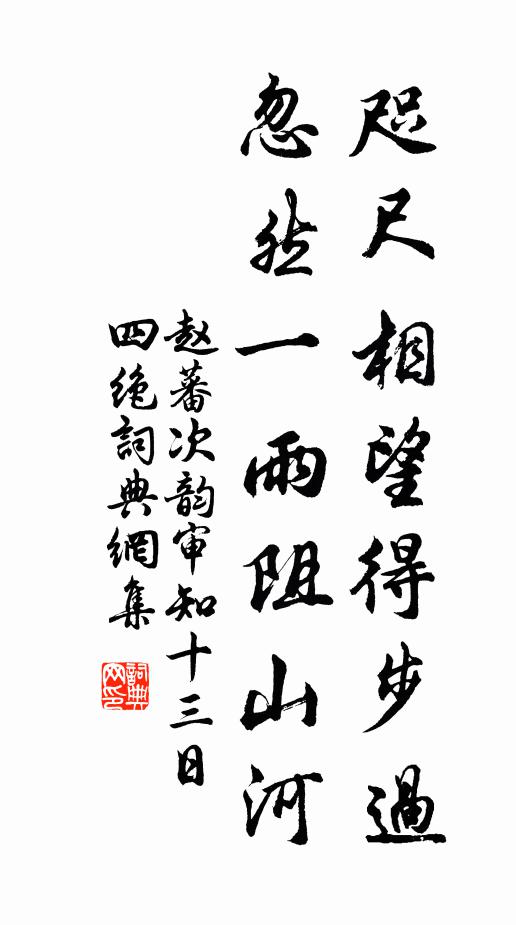 咫尺相望得步過
忽然一雨阻山河
赵蕃次韵审知十三日
四绝詞典網集
詞典
网印